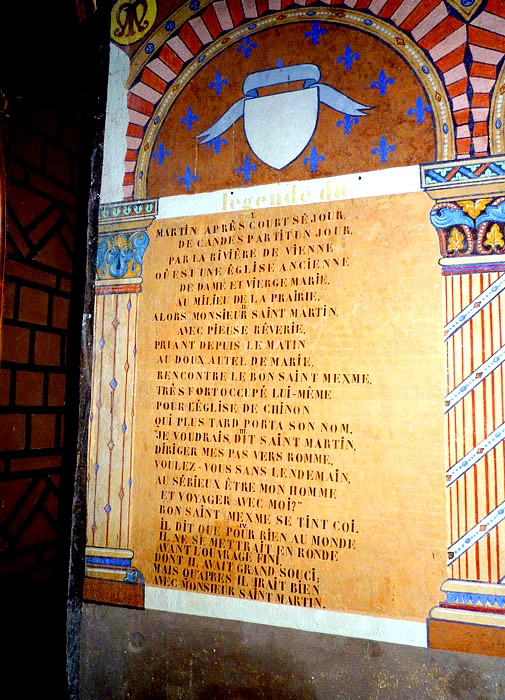 légende du
I
MARTIN APRÈS COURT SÉJOUR,
DE CANDES PARTIT UN JOUR,
PAR LA RIVIÈRE DE VIENNE
OÙ EST UNE ÉGLISE ANCIENNE
DE DAME ET VIERGE MARIE,
AU MILIEU DE LA PRAIRIE.
II
ALORS MONSIEUR SAINT MARTIN,
AVEC PIEUSE RÊVERIE,
PRIANT DEPUIS LE MATIN
AU DOUX AUTEL DE MARIE,
RENCONTRE LE BON SAINT MEXME,
TRÈS FORT OCCUPÉ LUI-MÊME
POUR L'ÉGLISE DE CHINON
QUI PLUS TARD PORTA SON NOM.
III
"JE VOUDRAIS, DIT SAINT MARTIN,
DIRIGER MES PAS VERS ROMME,
VOULEZ-VOUS SANS LENDEMAIN,
AU SÉRIEUX ÊTRE MON HOMME
ET VOYAGER AVEC MOI?"
BON SAINT MEXME SE TINT COI,
IV
IL DIT QUE POUR RIEN AU MONDE
IL NE SE METTRAIT EN RONDE
AVANT L'OUVRAGE FINI,
DONT IL AVAIT GRAND SOUCI;
MAIS QU'APRÈS IL IRAIT BIEN
AVEC MONSIEUR SAINT MARTIN.